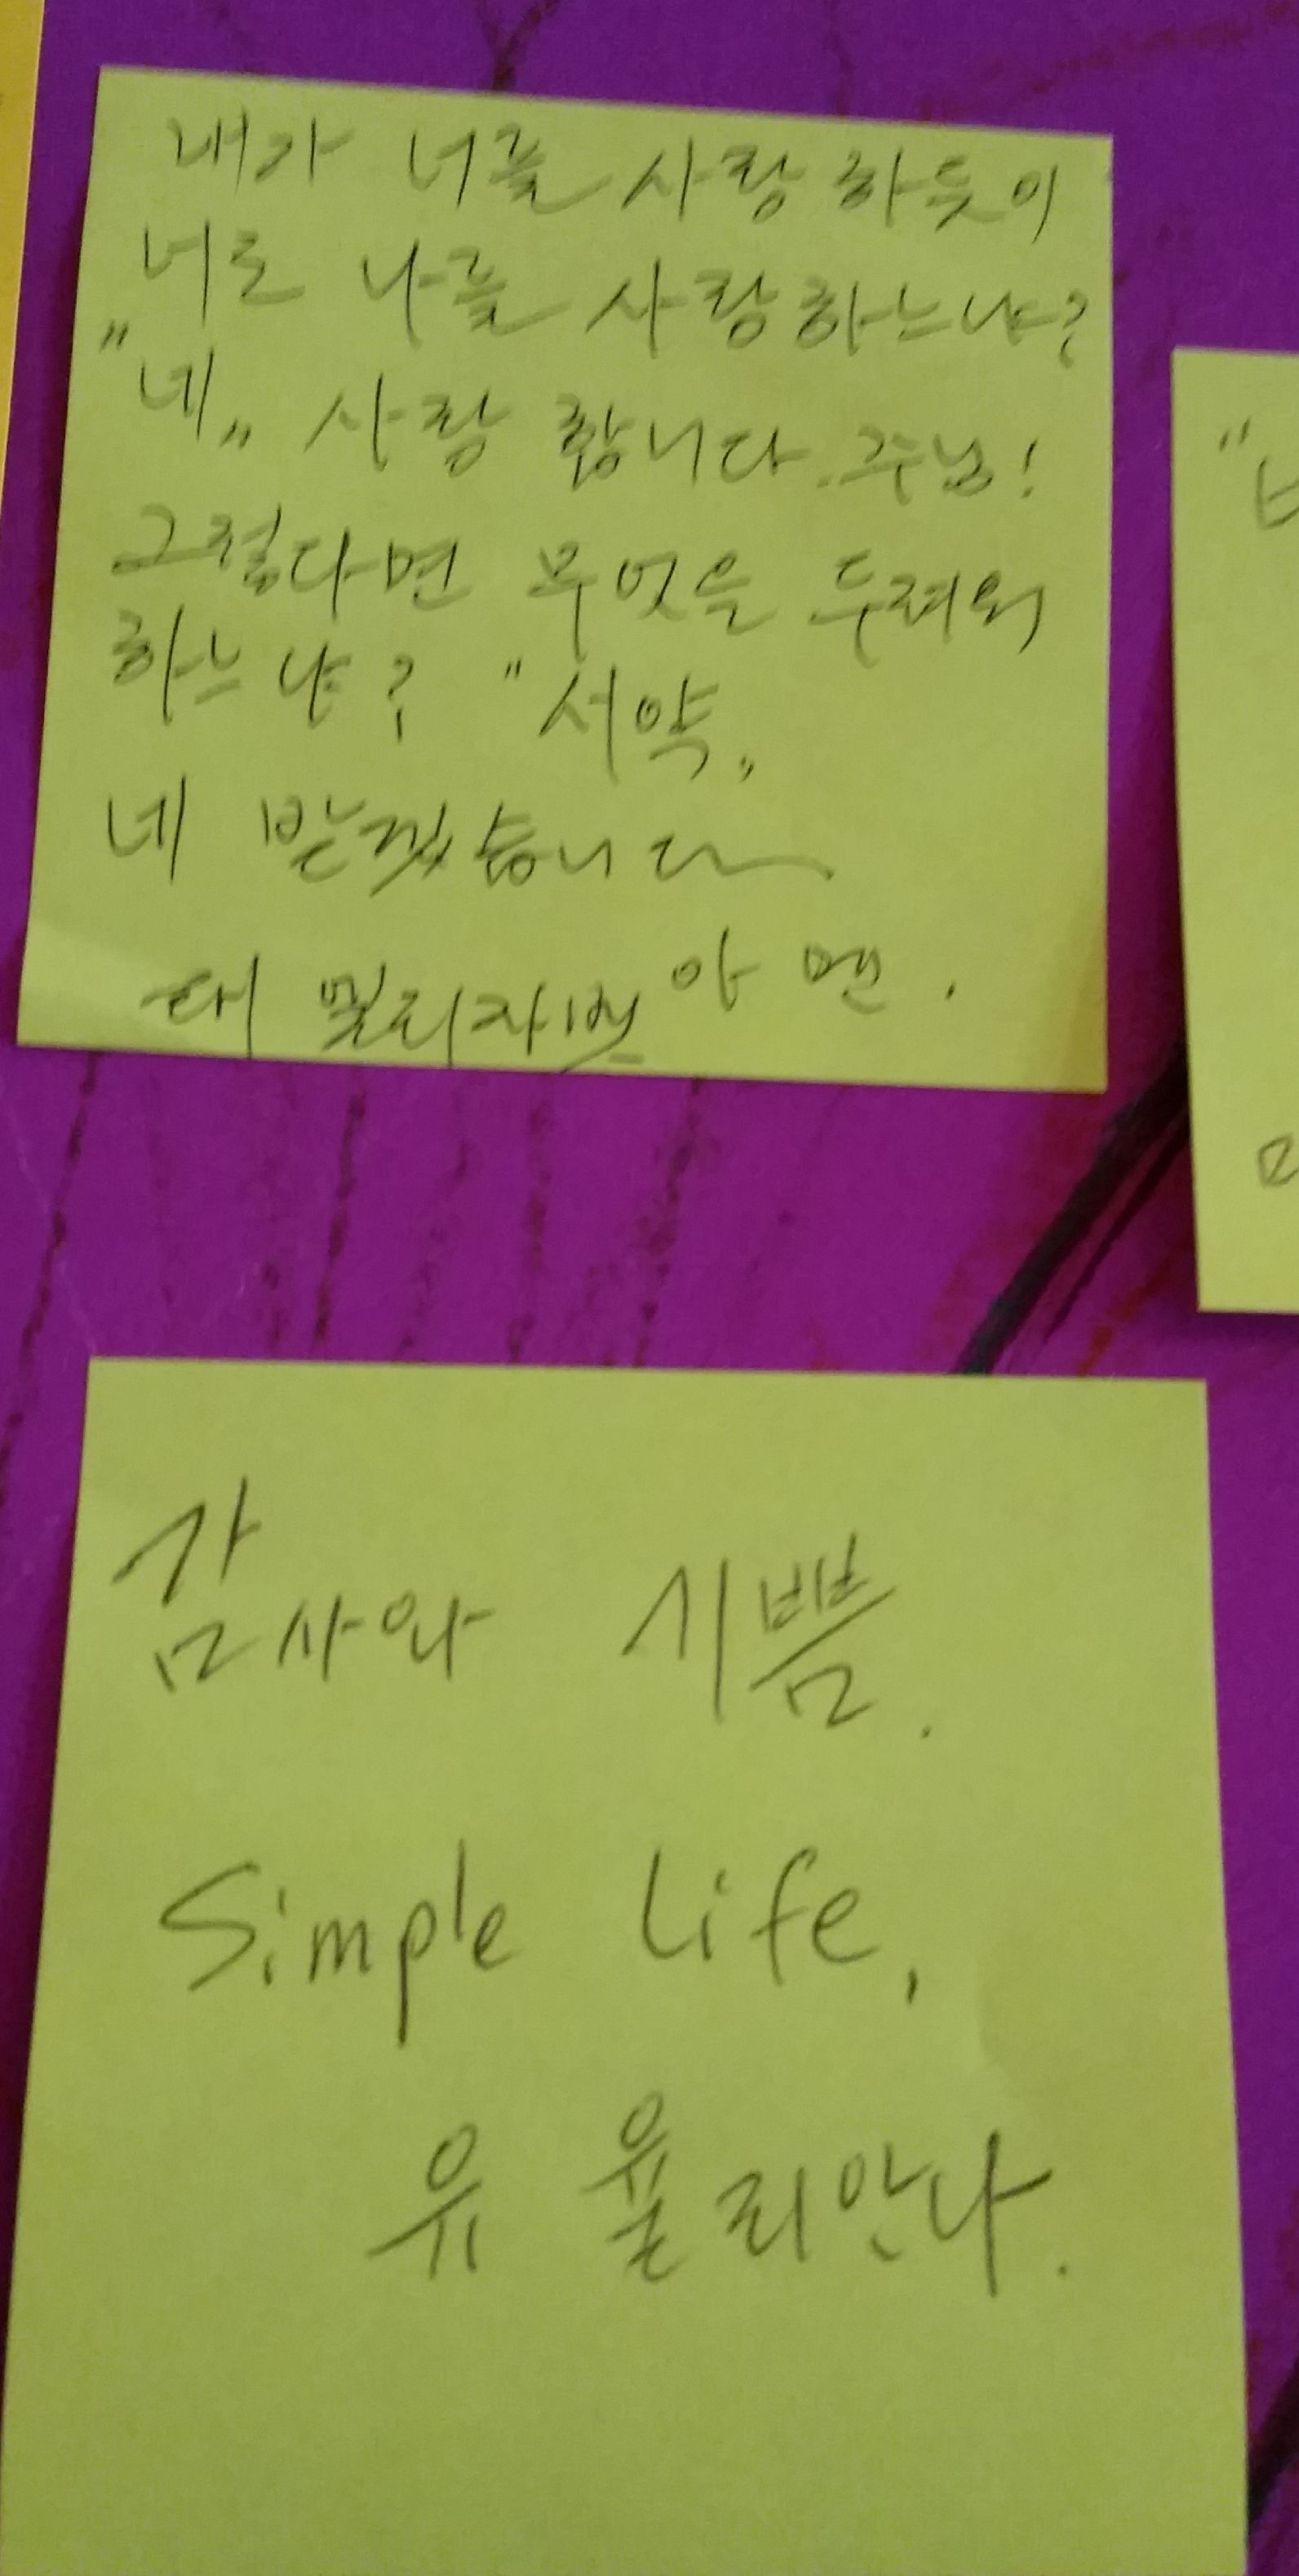 내가 너를 사랑 하듯이
너도 나를 사랑하느냐?
"네" 사랑 합니다. 주님!
그렇다면 무엇을 두려워
하느냐? "서약"
네 받겠습니다
아멘.
감사와 기쁨.
Simple Life,
유 율리안나.